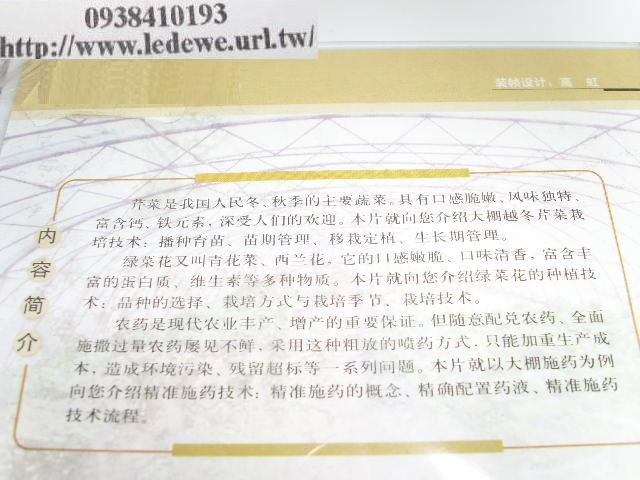 0938410193
http://www.ledewe.url.tw/
装帧设计：高 虹
内容简介
芹菜是我国人民冬、秋季的主要蔬菜。具有口感脆嫩、风味独特、
富含钙、铁元素，深受人们的欢迎。本片就向您介绍大棚越冬芹菜栽
培技术：播种育苗、苗期管理、移栽定植、生长期管理。
绿菜花又叫青花菜、西兰花，它的口感嫩脆、口味清香，富含丰
富的蛋白质、维生素等多种物质。本片就向您介绍绿菜花的种植技
术：品种的选择、栽培方式与栽培季节、栽培技术。
农药是现代农业丰产、增产的重要保证。但随意配兑农药、全面
施撒过量农药屡见不鲜，采用这种粗放的喷药方式，只能加重生产成
本，造成环境污染、残留超标等一系列问题。本片就以大棚施药为例
向您介绍精准施药技术：精准施药的概念、精确配置药液、精准施药
技术流程。